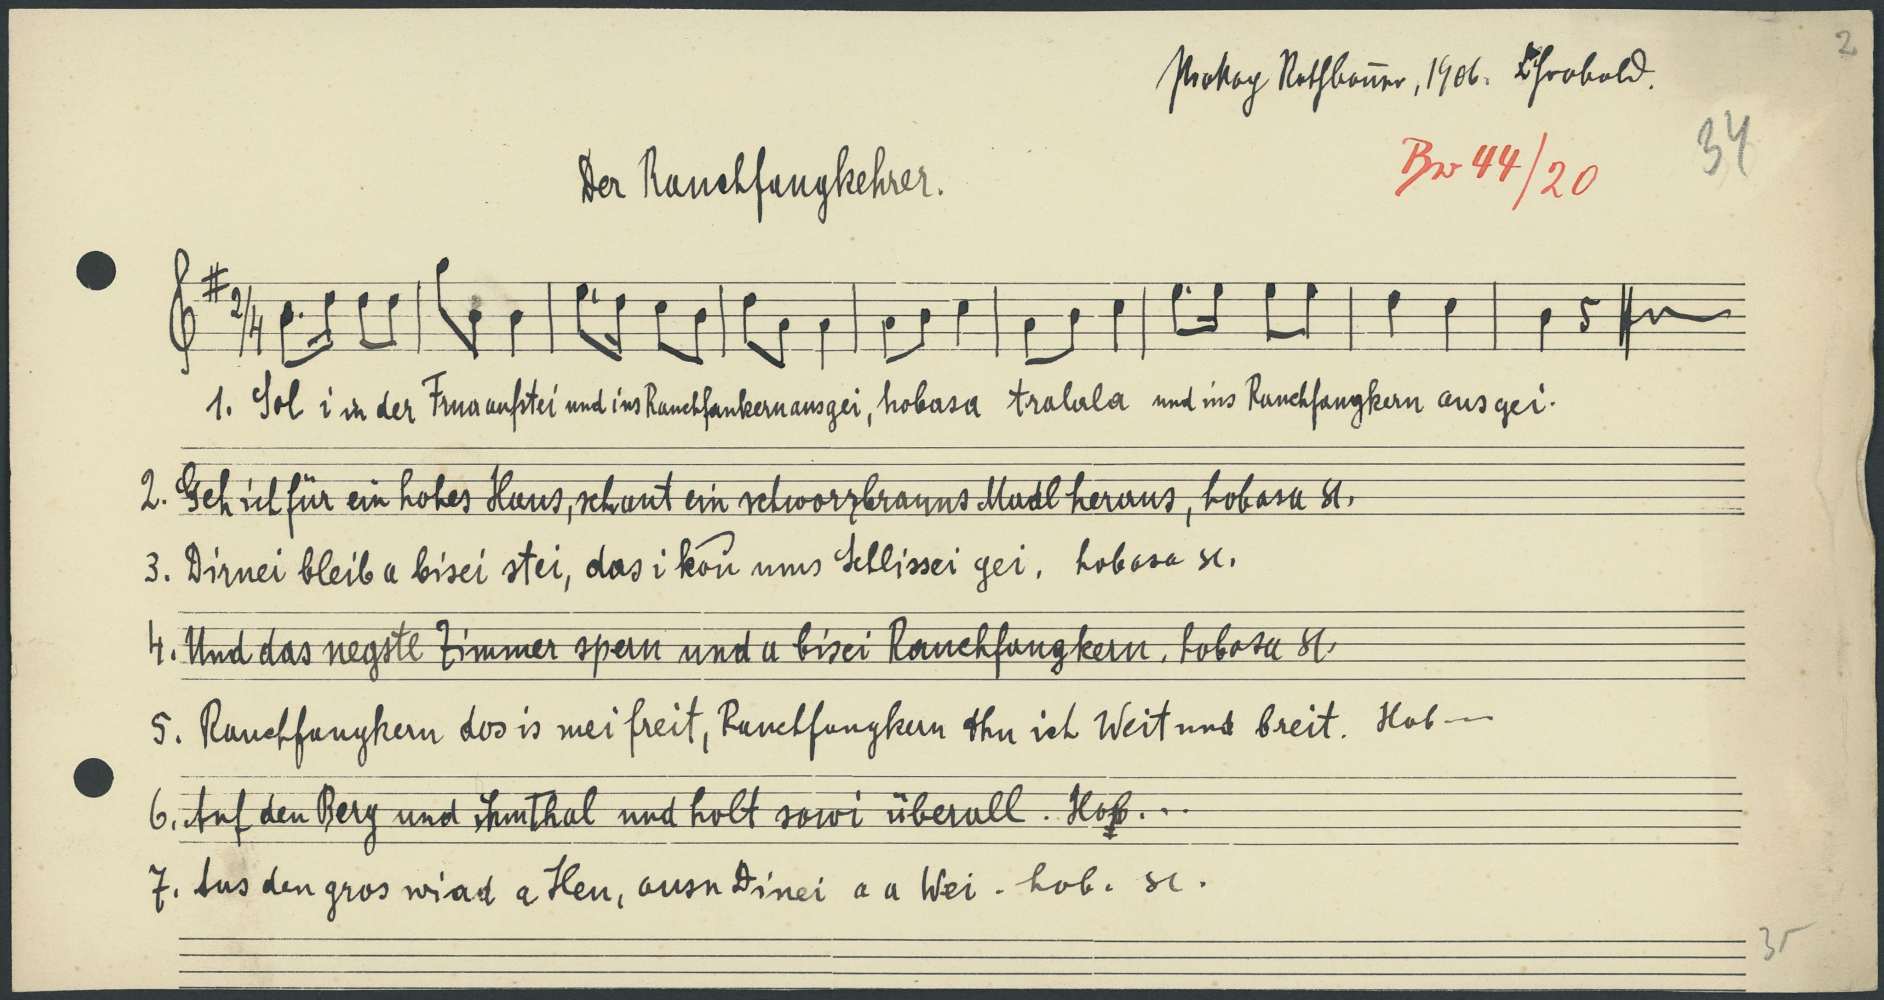 2
Rothbauer, 1906.
34
Bw 44/20
Der Rauchfangkehrer.
2/4
1. Sol i in der Frua aufstei und ins Rauchfankern ausgei, hobasa tralala und ins Rauchfangkern ausgei.
2. Geh ich für ein hohes Haus, schaut ein schworzbrauns Madl heraus, hobasa etc.
3. Dirnei bleib a bisei stei, das i kon ums Schlissei gei. hobasa etc.
4. Und das negste Zimmer spern und a bisei Rauchfangkern. hobasa etc.
5. Rauchfangkern dos is mei freit, Rauchfangkern thu ich Weit und breit. Hob —
6. Auf den Berg und ihm Thal und holt sowi überall. Hob...
7. Aus den gros wiad a Heu, ausn Dinei a a Wei. hob. etc.
35